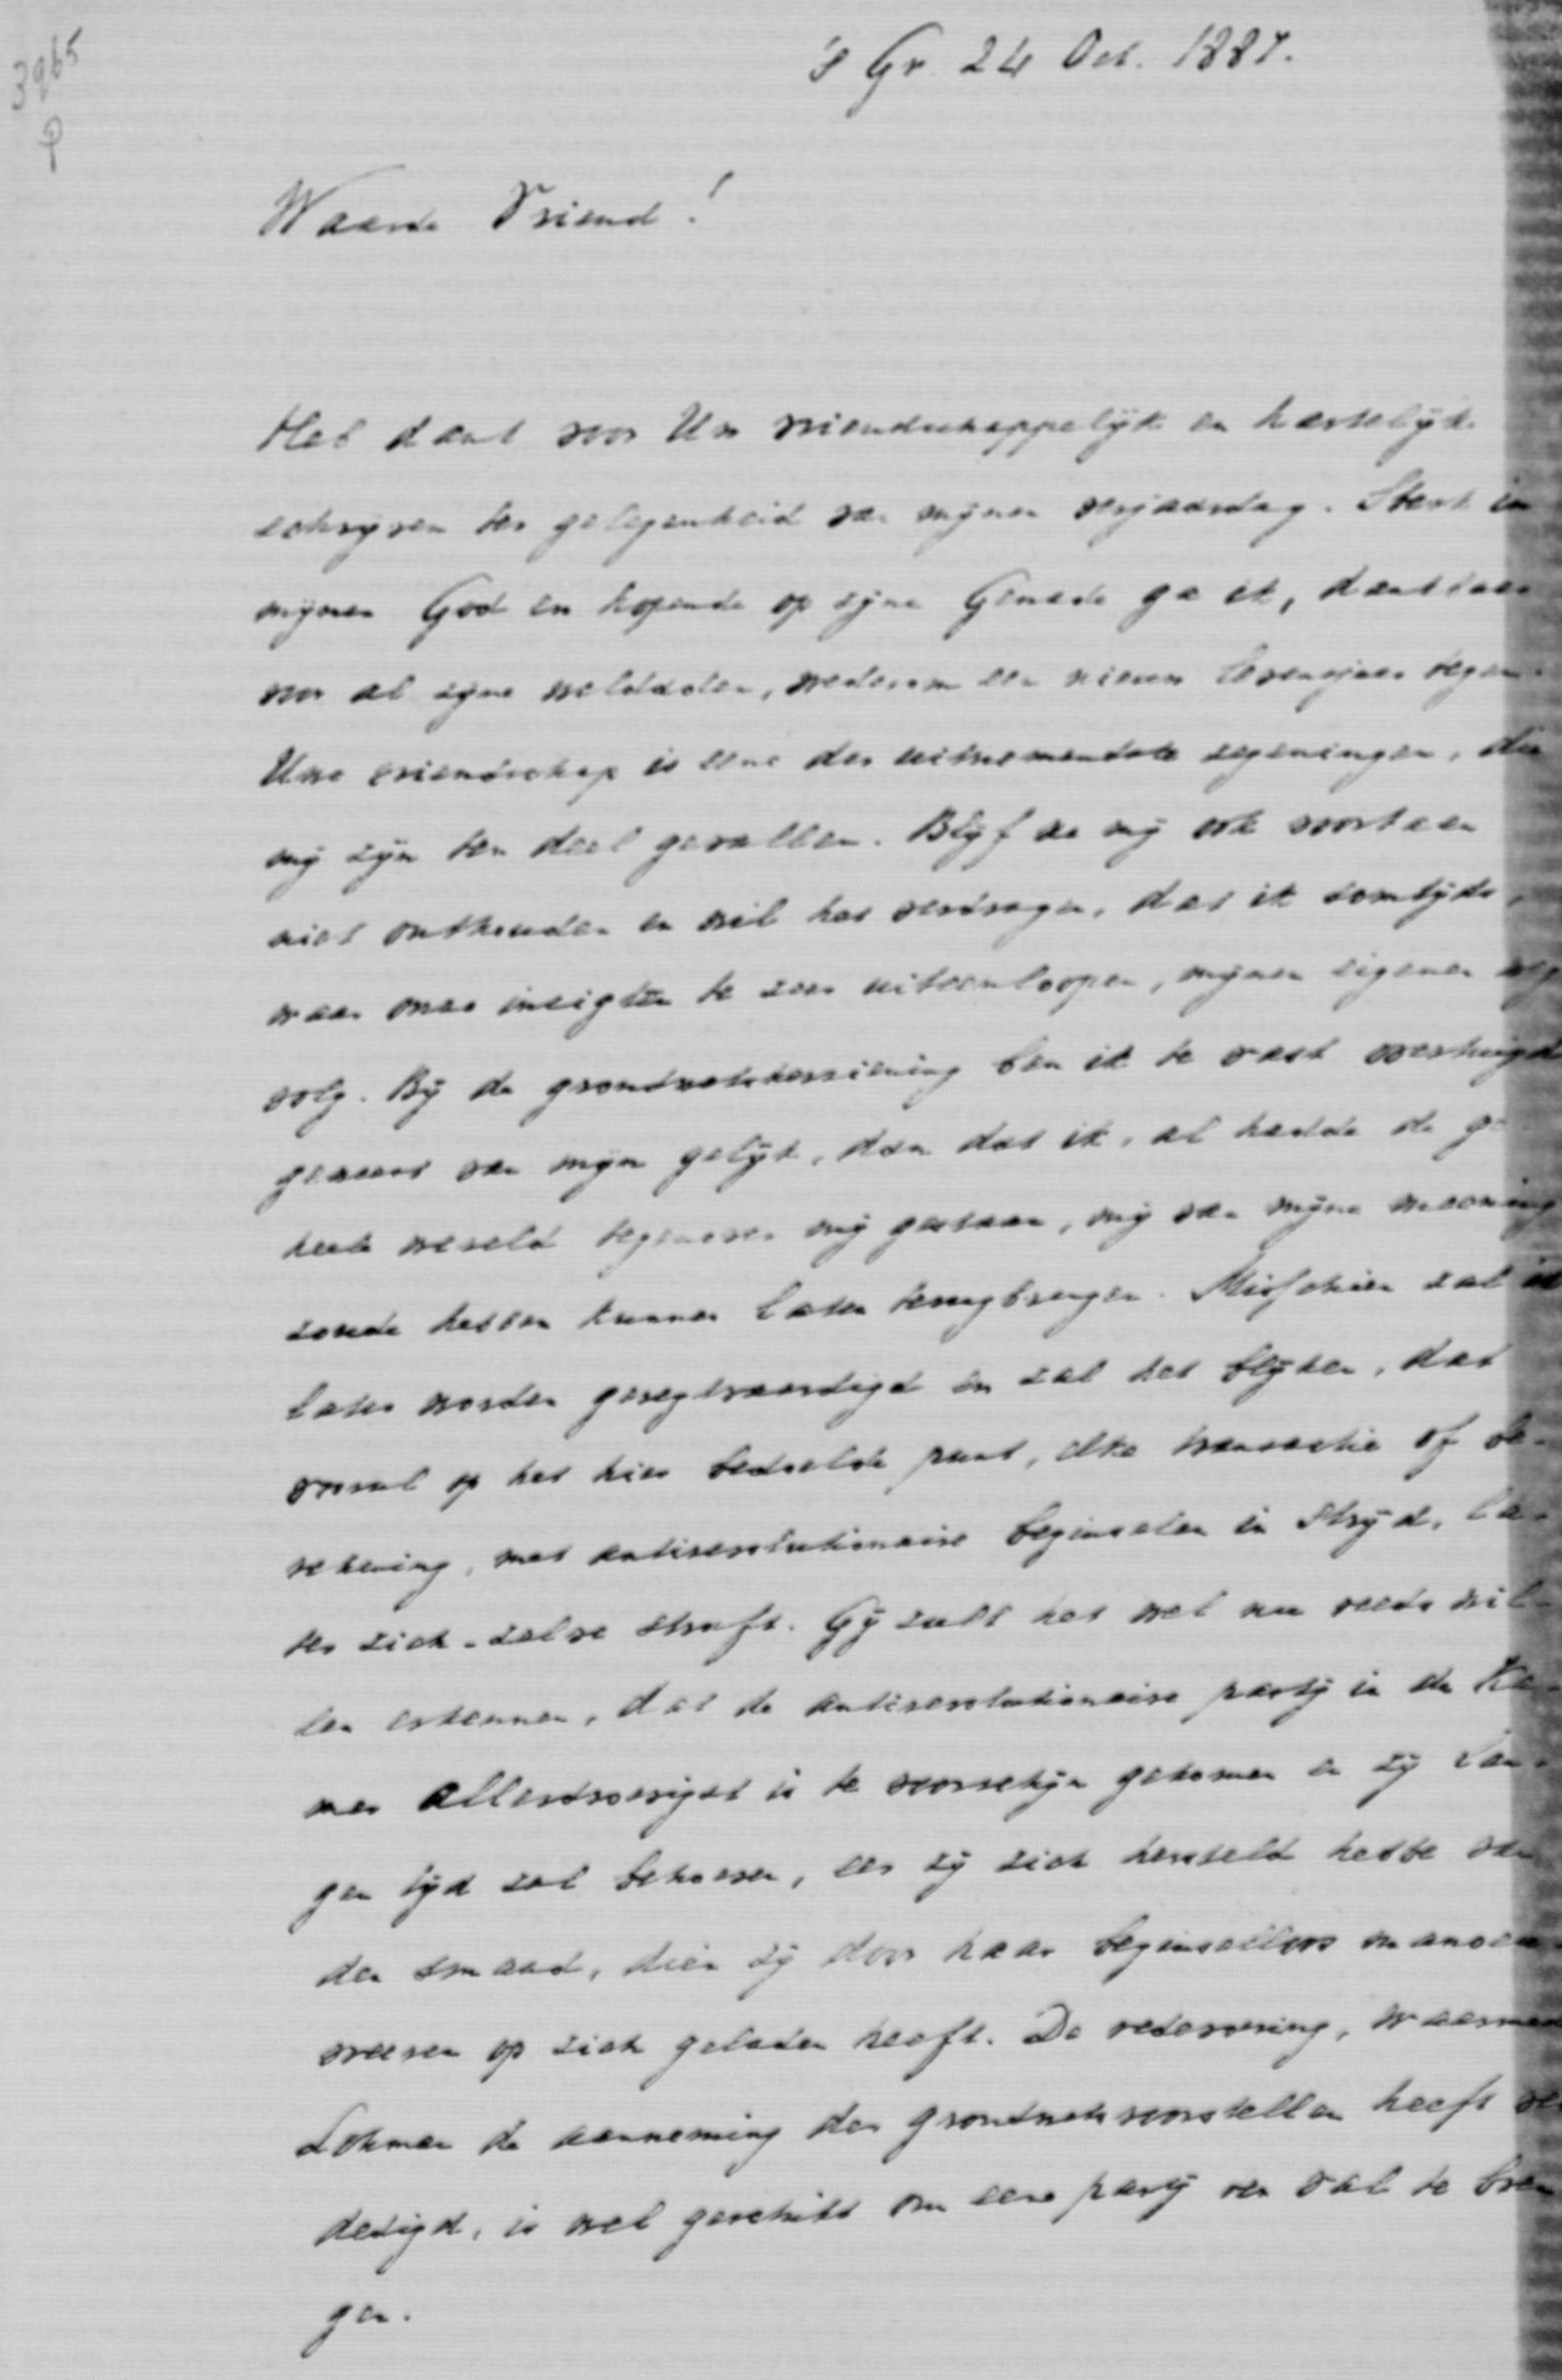 3965
P
's Gr 24 Oct. 1887.
Waarde Vriend!
Heb dank voor Uw vriendschappelijk en hartelijk
schrijven ter gelegenheid van mijnen verjaardag. Sterk in
mijnen God en hopende op zijne Genade ga ik, dankbaar
voor al zijne weldaden, wederom een nieuw levensjaar tegen.
Uwe vriendschap is eene der uitnemendste zegeningen, die
mij zijn ten deel gevallen. Blijf ze mij ook voortaan
niet onthouden en wil het verdragen, dat ik somtijds,
waar onze inzigten te zeer uiteenloopen, mijnen eigenen weg
volg. Bij de grondwetsherziening ben ik te vast overtuigd
geweest van mijn gelijk, dan dat ik, al hadde de ge
heele wereld tegenover mij gestaan, mij van mijne meening
zoude hebben kunnen laten terugbrengen. Misschien zal ik
later worden geregtvaardigd en zal het blijken, dat
vooral op het hier bedoelde punt, elke transactie of be-
rekening, met antirevolutionaire beginselen in strijd, la-
ter zich-zelve straft. Gij zult het wel nu reeds wil-
len erkennen, dat de antirevolutionaire partij in de Ka-
mer allerdroevigst is te voorschijn gekomen en zij lan-
gen tijd zal behoeven, eer zij zich hersteld hebbe van
den smaad, dien zij door haar beginselloos manoeu-
vreeren op zich geladen heeft. De redevoering, waarmede
Lohman de aanneming der grondwetsvoorstellen heeft ver
dedigd, is wel geschikt om eene partij ten val te bren
gen.